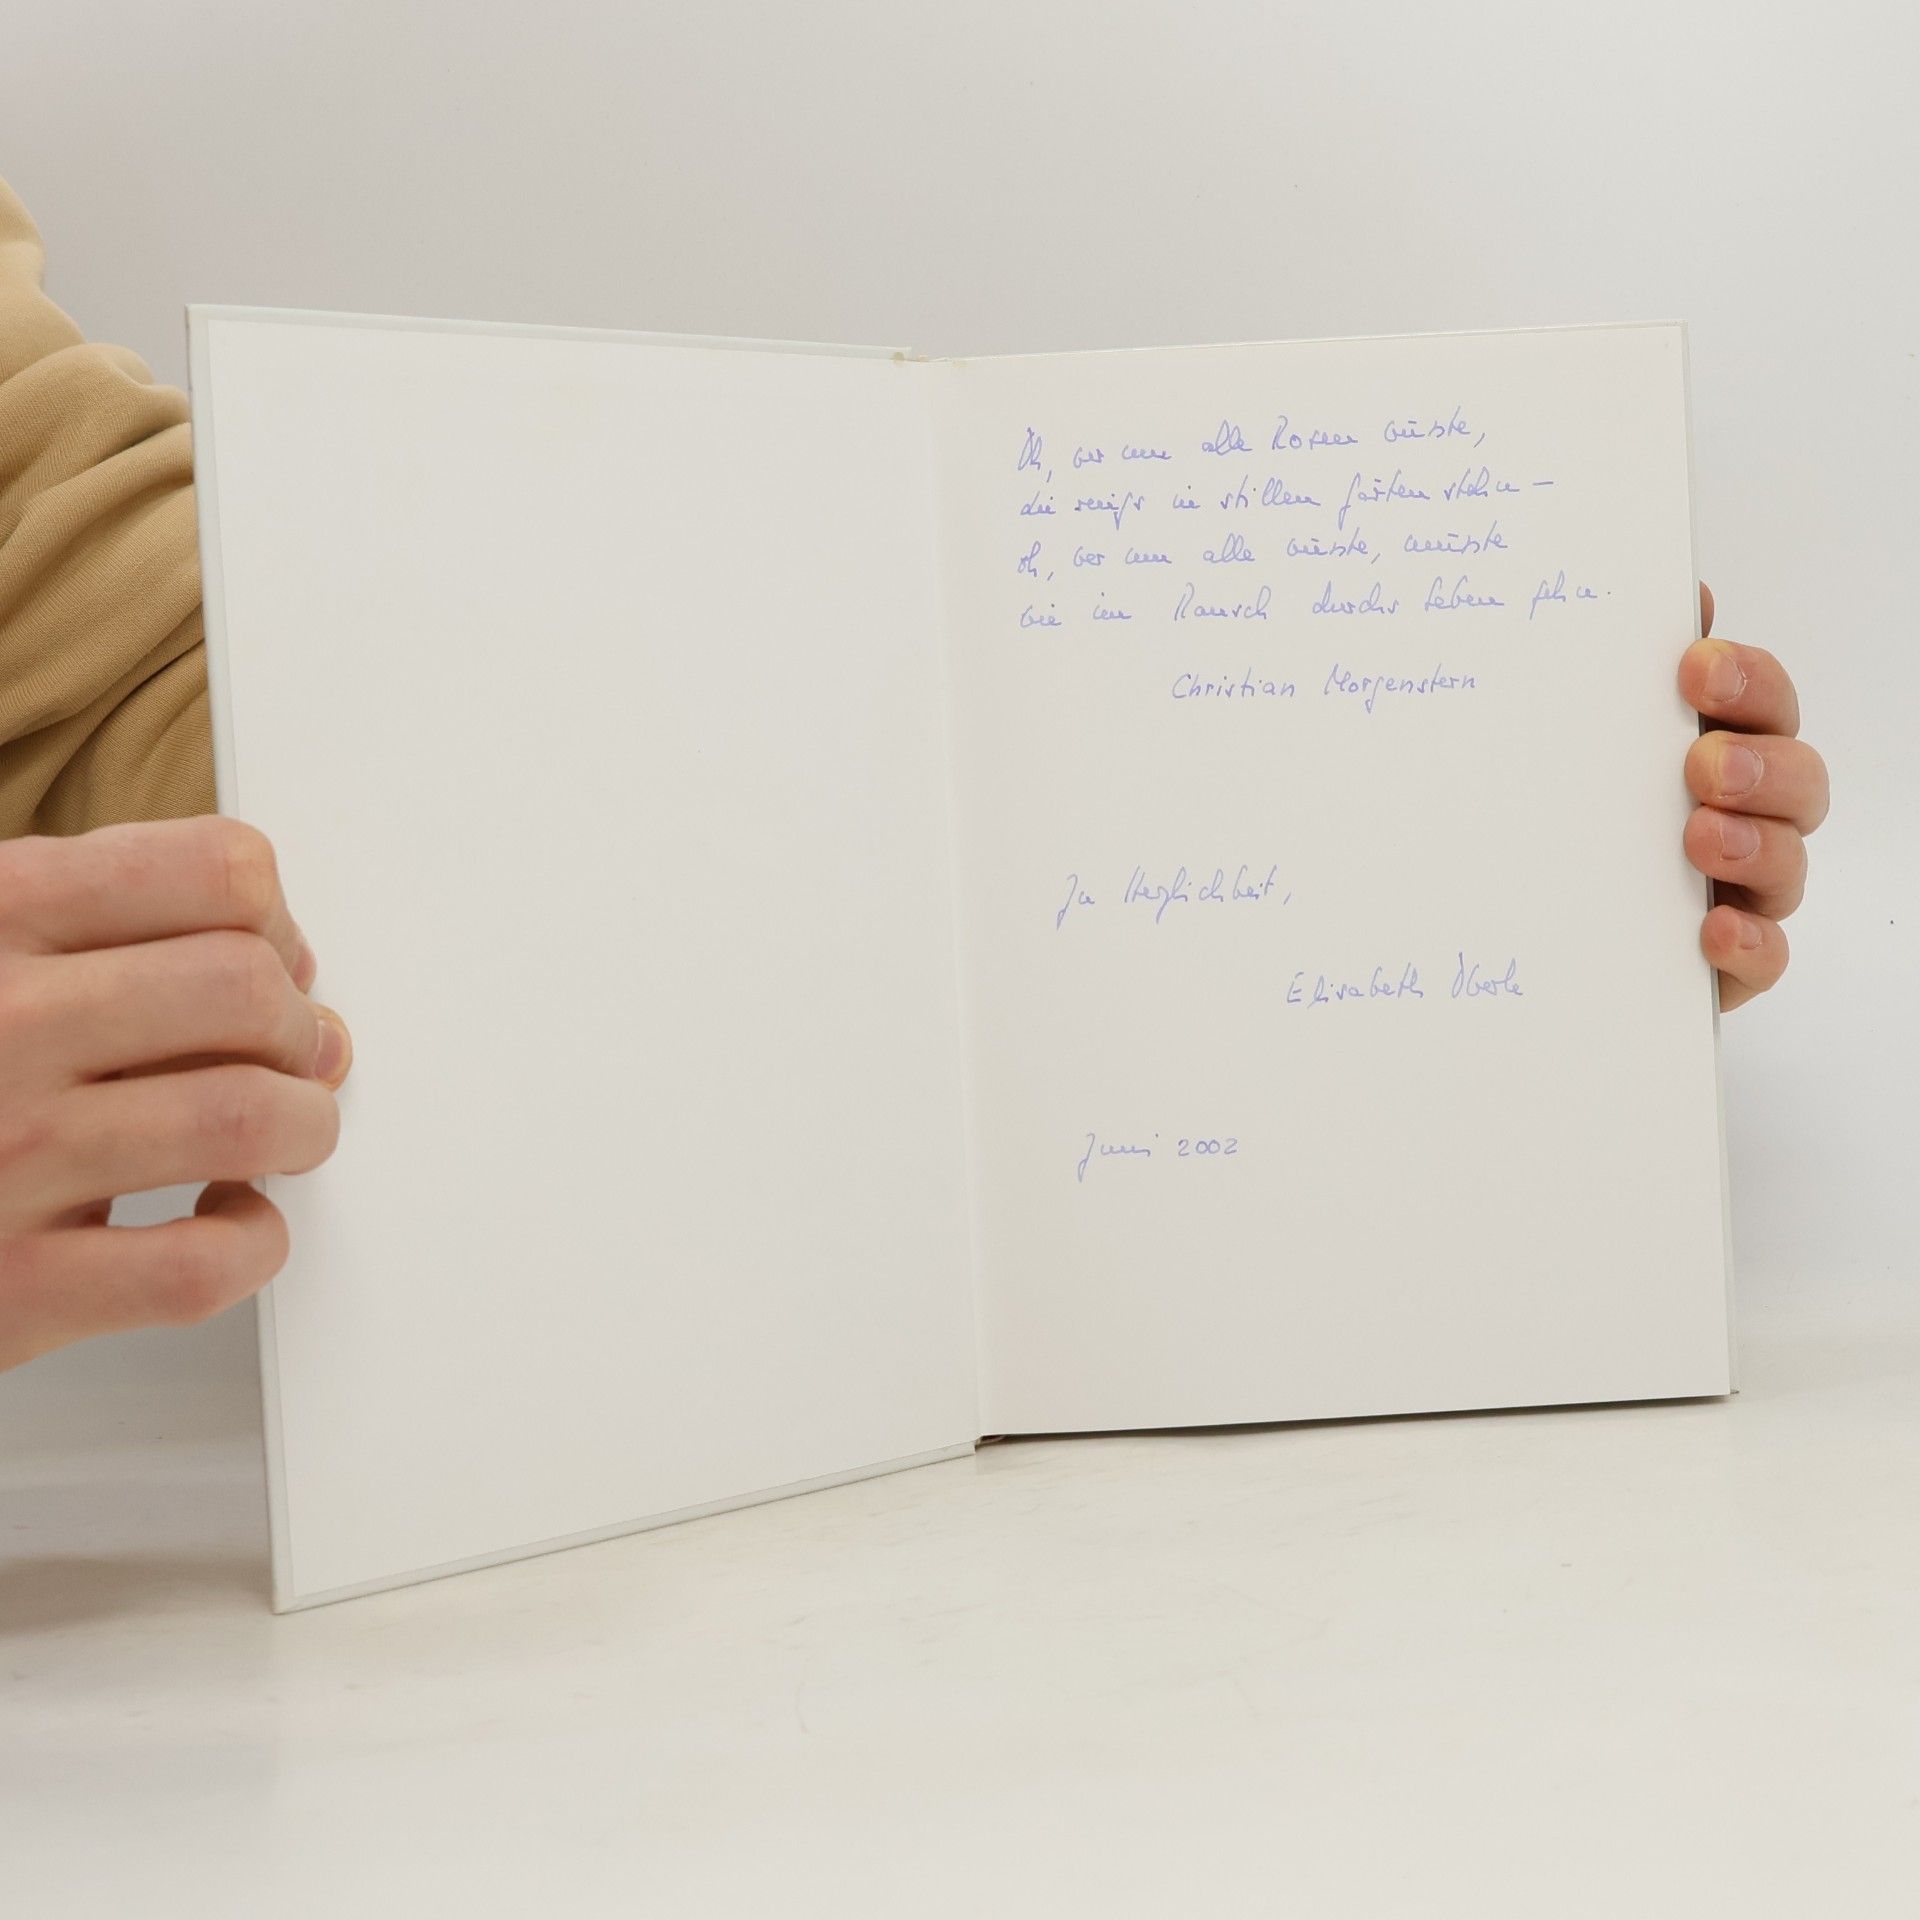 Oh, wer um alle Rosen wüsste,
die rings in stillen Gärten stehn –
oh, wer um alle wüsste, müsste
wie im Rausch durchs Leben gehn.
Christian Morgenstern
In Herzlichkeit,
Elisabeth Oberle
Juni 2002